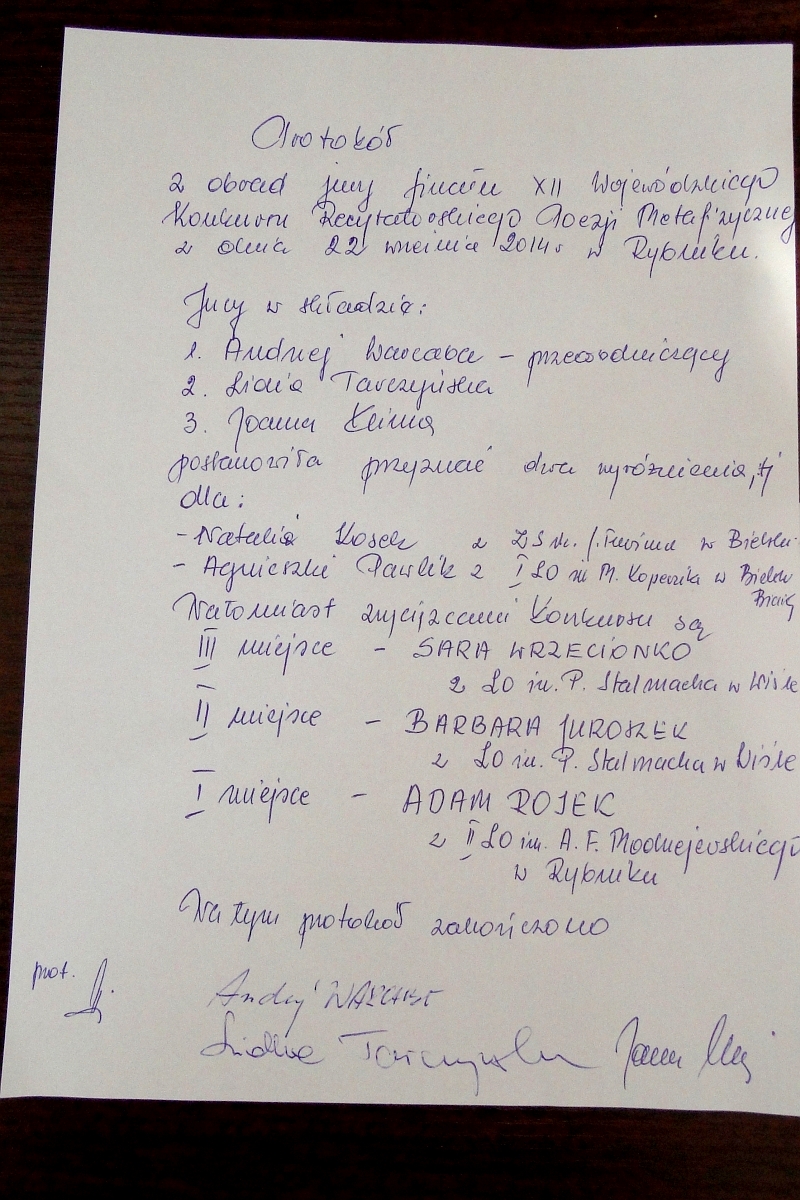 Protokół
z obrad jury finału XII Wojewódzkiego
Konkursu Recytatorskiego Poezji Metafizycznej
z dnia 22 września 2014 r w Rybniku.
Jury w składzie:
1. Andrzej Warcaba – przewodniczący
2. Lidia Tarczyńska
3. Joanna Klima
postanowiła przyznać dwa wyróżnienia, tj
dla:
- Natalia Kosek z ZS im. J. Tuwima w Bielsku-
- Agnieszki Pawlik z I LO im M. Kopernika w Bielsku
Białej
Natomiast zwyciężcami Konkursu są
III miejsce – SARA WRZECIONKO
z LO im. P. Stalmacha w Wiśle
II miejsce – BARBARA JUROSZEK
z LO im. P. Stalmacha w Wiśle
I miejsce – ADAM ROJEK
z II LO im. A. F. Modrzejewskiego
w Rybniku
Na tym protokół zakończono
prot.
Andrzej
Lidia Tarczyńska Joanna